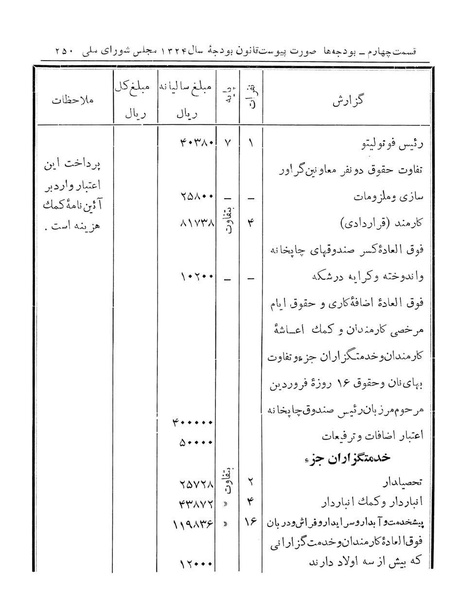 قسمت چهارم ــ بودجه‌ها صورت پیوست قانون بودجهٔ سال ۱۳۲۴ مجلس شورای ملی ۲۵۰
گزارش نفرات پایه مبلغ سالیانه ریال مبلغ کل ریال ملاحظات
رئیس فوتولیتو ۱ ۷ ۴۰۳۸۰
تفاوت حقوق دو نفر معاونین گراور
سازی و ملزومات – – ۲۵۸۰۰
کارمند (قراردادی) ۴ بتفاوت ۸۱۷۳۸
فوق العادهٔ کسر صندوقهای چاپخانه
واندوخته و کرایه درشکه – – ۱۰۲۰۰
فوق العادهٔ اضافهٔ کاری و حقوق ایام
مرخصی کارمندان و کمك اعاشهٔ
کارمندان و خدمتگزاران جزء و تفاوت
بهای نان و حقوق ۱۶ روزهٔ فروردین
مرحوم مرزبان رئیس صندوق چاپخانه ۴۰۰۰۰۰
اعتبار اضافات و ترفیعات ۵۰۰۰۰
خدمتگزاران جزء
تحصیلدار ۲ بتفاوت ۲۵۷۲۸
انباردار و کمك انباردار ۴ » ۴۳۸۷۲
پیشخدمت و آبدار و سرایدار و فراش و دربان ۱۶ » ۱۱۹۸۳۶
فوق العادهٔ کارمندان و خدمت گزارانی
که بیش از سه اولاد دارند ۱۲۰۰۰
پرداخت این
اعتبار وارد بر
آئین نامهٔ کمك
هزینه است .